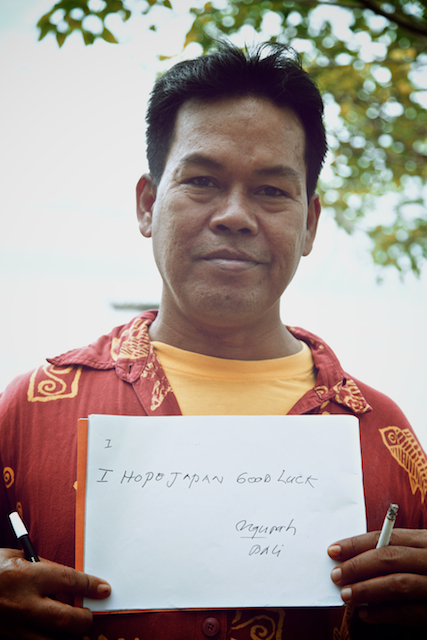 I
I HOPE JAPAN GOOD LUCK
Bali